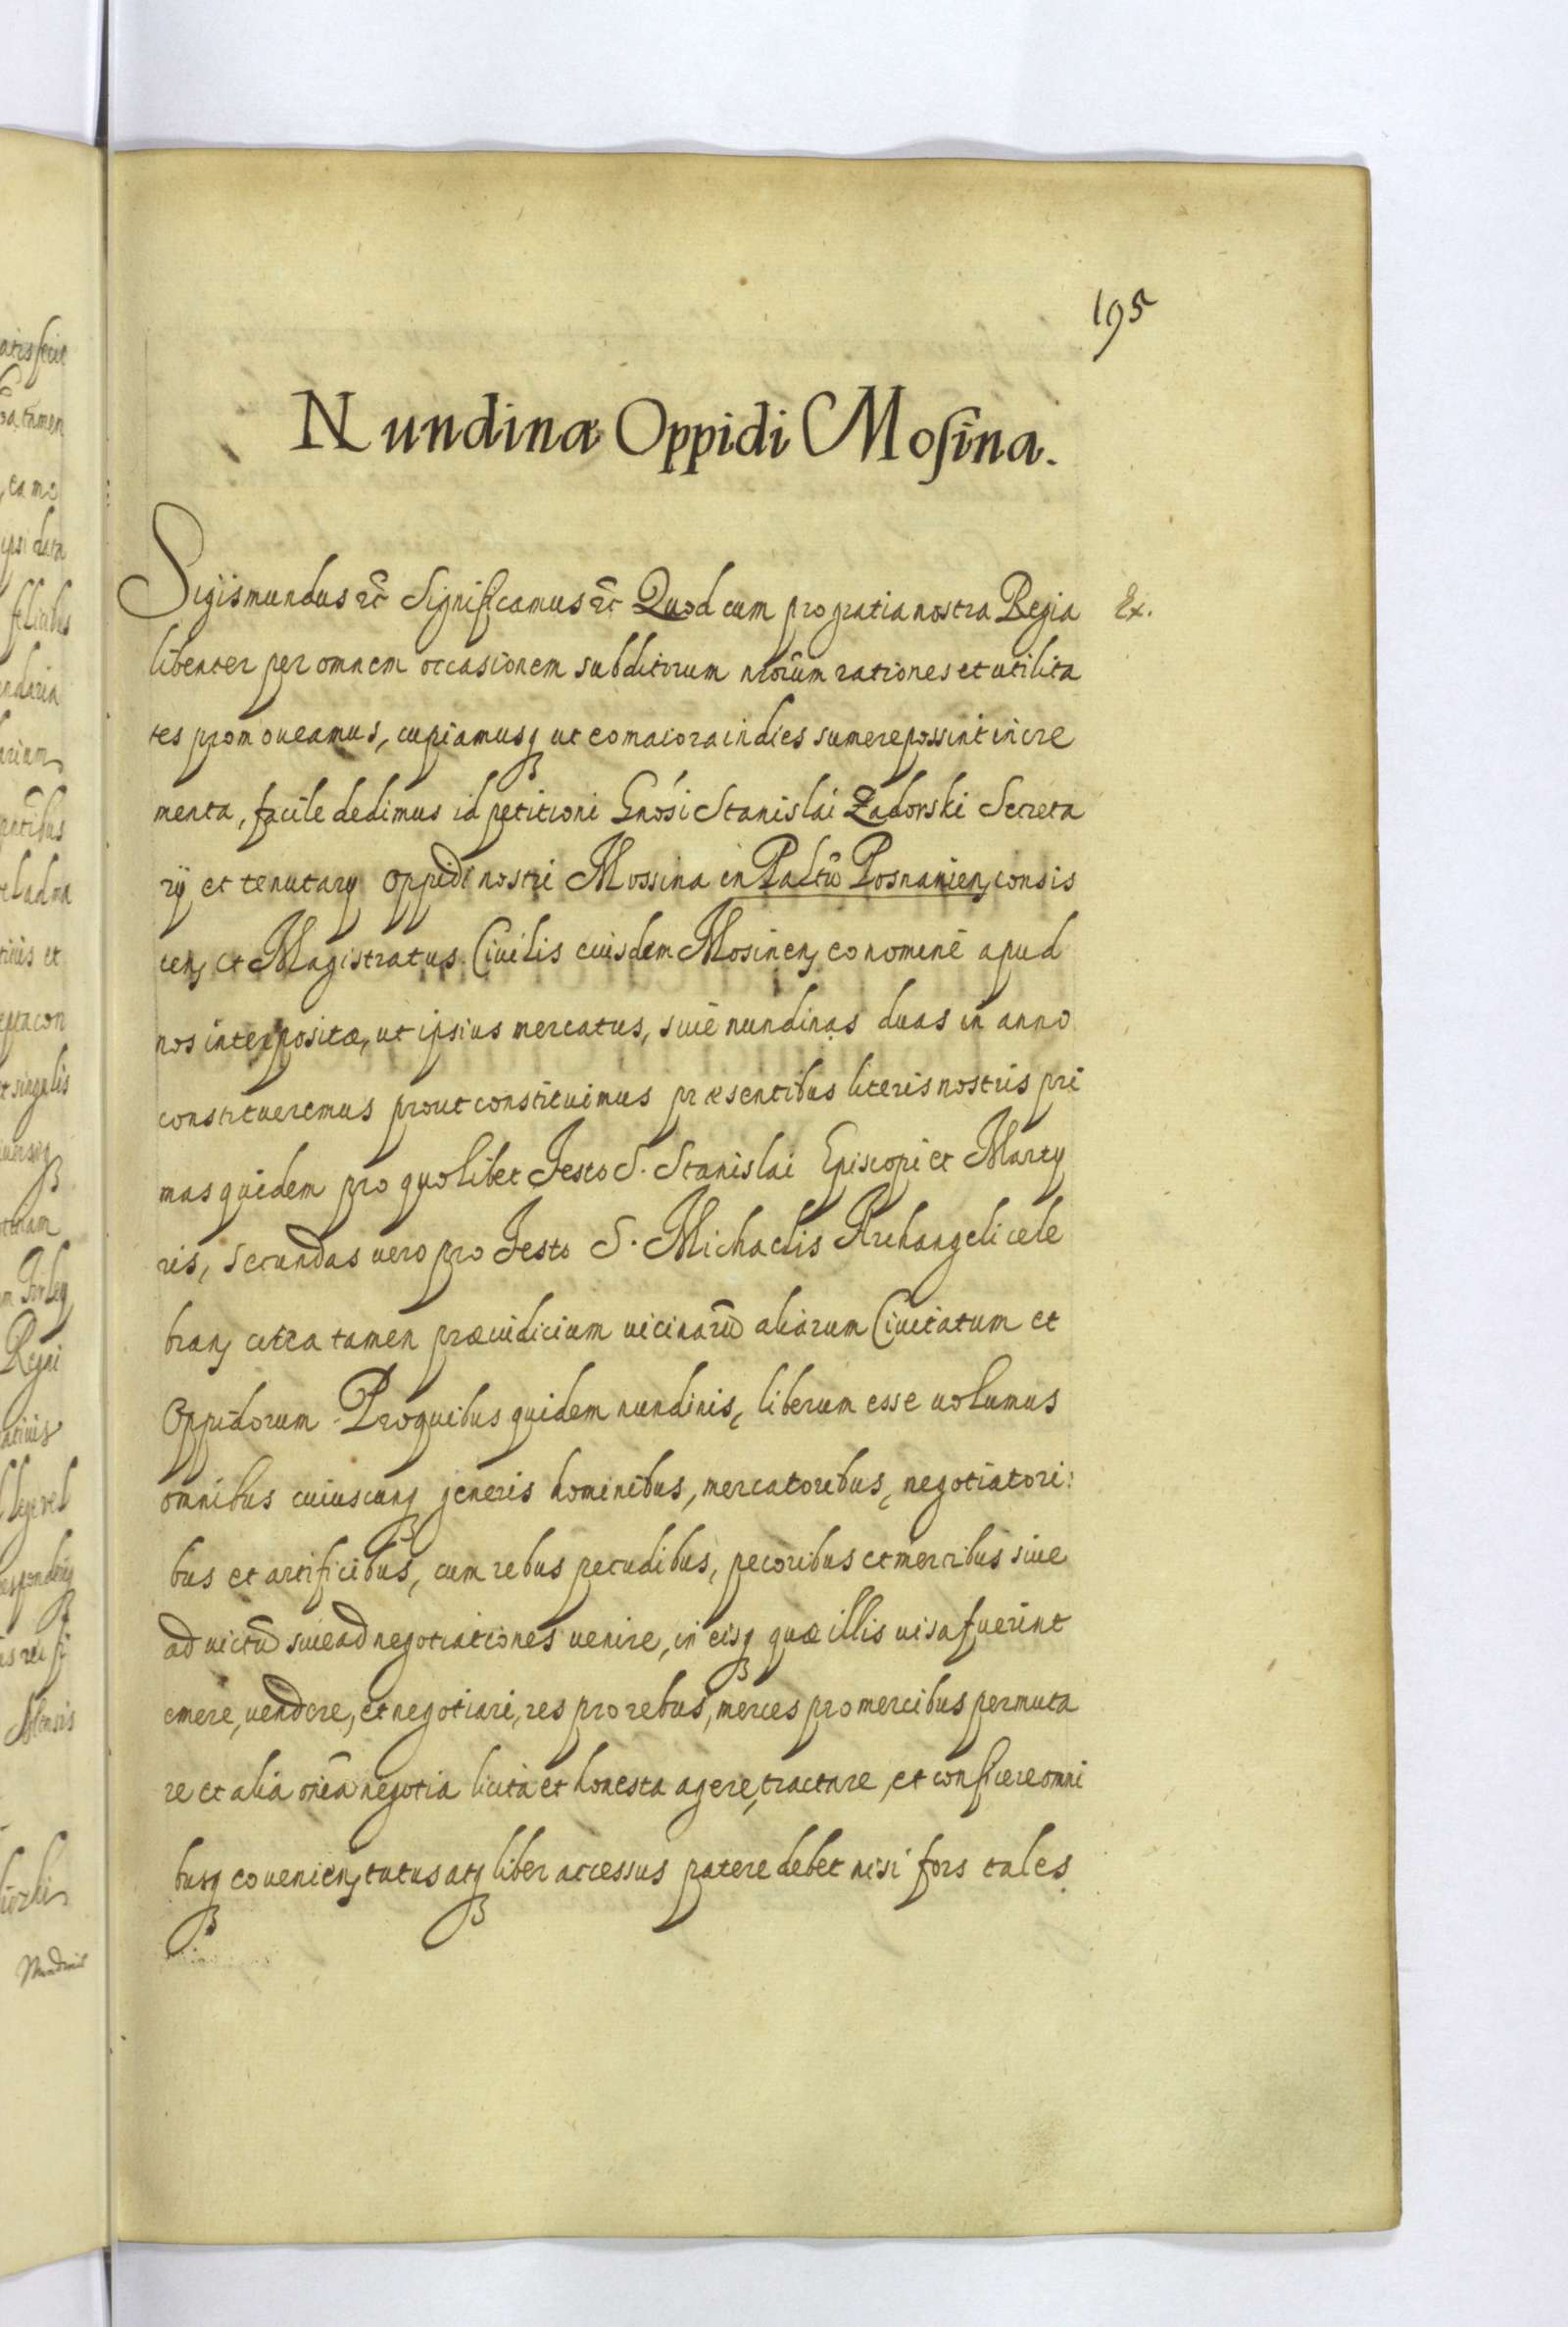 195
Nundinæ Oppidi Mosina.
Sigismundus etc̃ Significamus etc̃ Quod cum pro gratia nostra Regia Ex.
libenter per omnem occasionem subditorum nrorũm rationes et utilita
tes promoveamus, cupiamusq ut eo maiora in dies sumere possint incre
menta, facile dedimus id petitioni Gnosi Stanislai Zadorski Secreta
rij et tenutarij oppidi nostri Mossina in Paltũ Posnanien consis
ten et Magistratus Civilis eiusdem Mosinen eo nomine apud
nos interpositæ, ut ipsius mercatus, siue nundinas duas in anno
constitueremus prout constituimus præsentibus literis nostris pri
mas quidem pro quolibet Festo S. Stanislai Episcopi et Marty
ris, secundas vero pro Festo S. Michaelis Archangeli cele
bran citra tamen præiudicium uicinarũ aliarum Ciuitatum et
Oppidorum Pro quibus quidem nundinis, liberum esse uolumus
omnibus cuiuscunq generis hominibus, mercatoribus, negotiatori:
bus et artificibus, cum rebus pecudibus, pecoribus et mercibus siue
ad uictũ siue ad negotiationes uenire, in eisq quæ illis uisa fuerint
emere, vendere, et negotiari, res pro rebus, merces pro mercibus permuta
re et alia om̃ia negotia licita et honesta agere, tractare, et conficere omni
busq eo uenien tutus atq liber accessus patere debet nisi fors tales